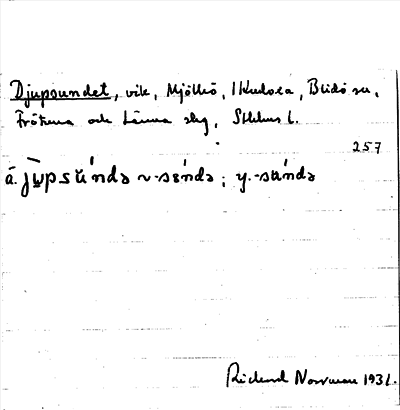 Djupsundet, vik, Mjölkö, i Kudoxa, Blidö sn,
Frötuna och Länna skg, Sthlms l.
257
ā. jùpsúndə ~ -sɛ́ndə; y. -súndə
Rickard Norrman 1931.